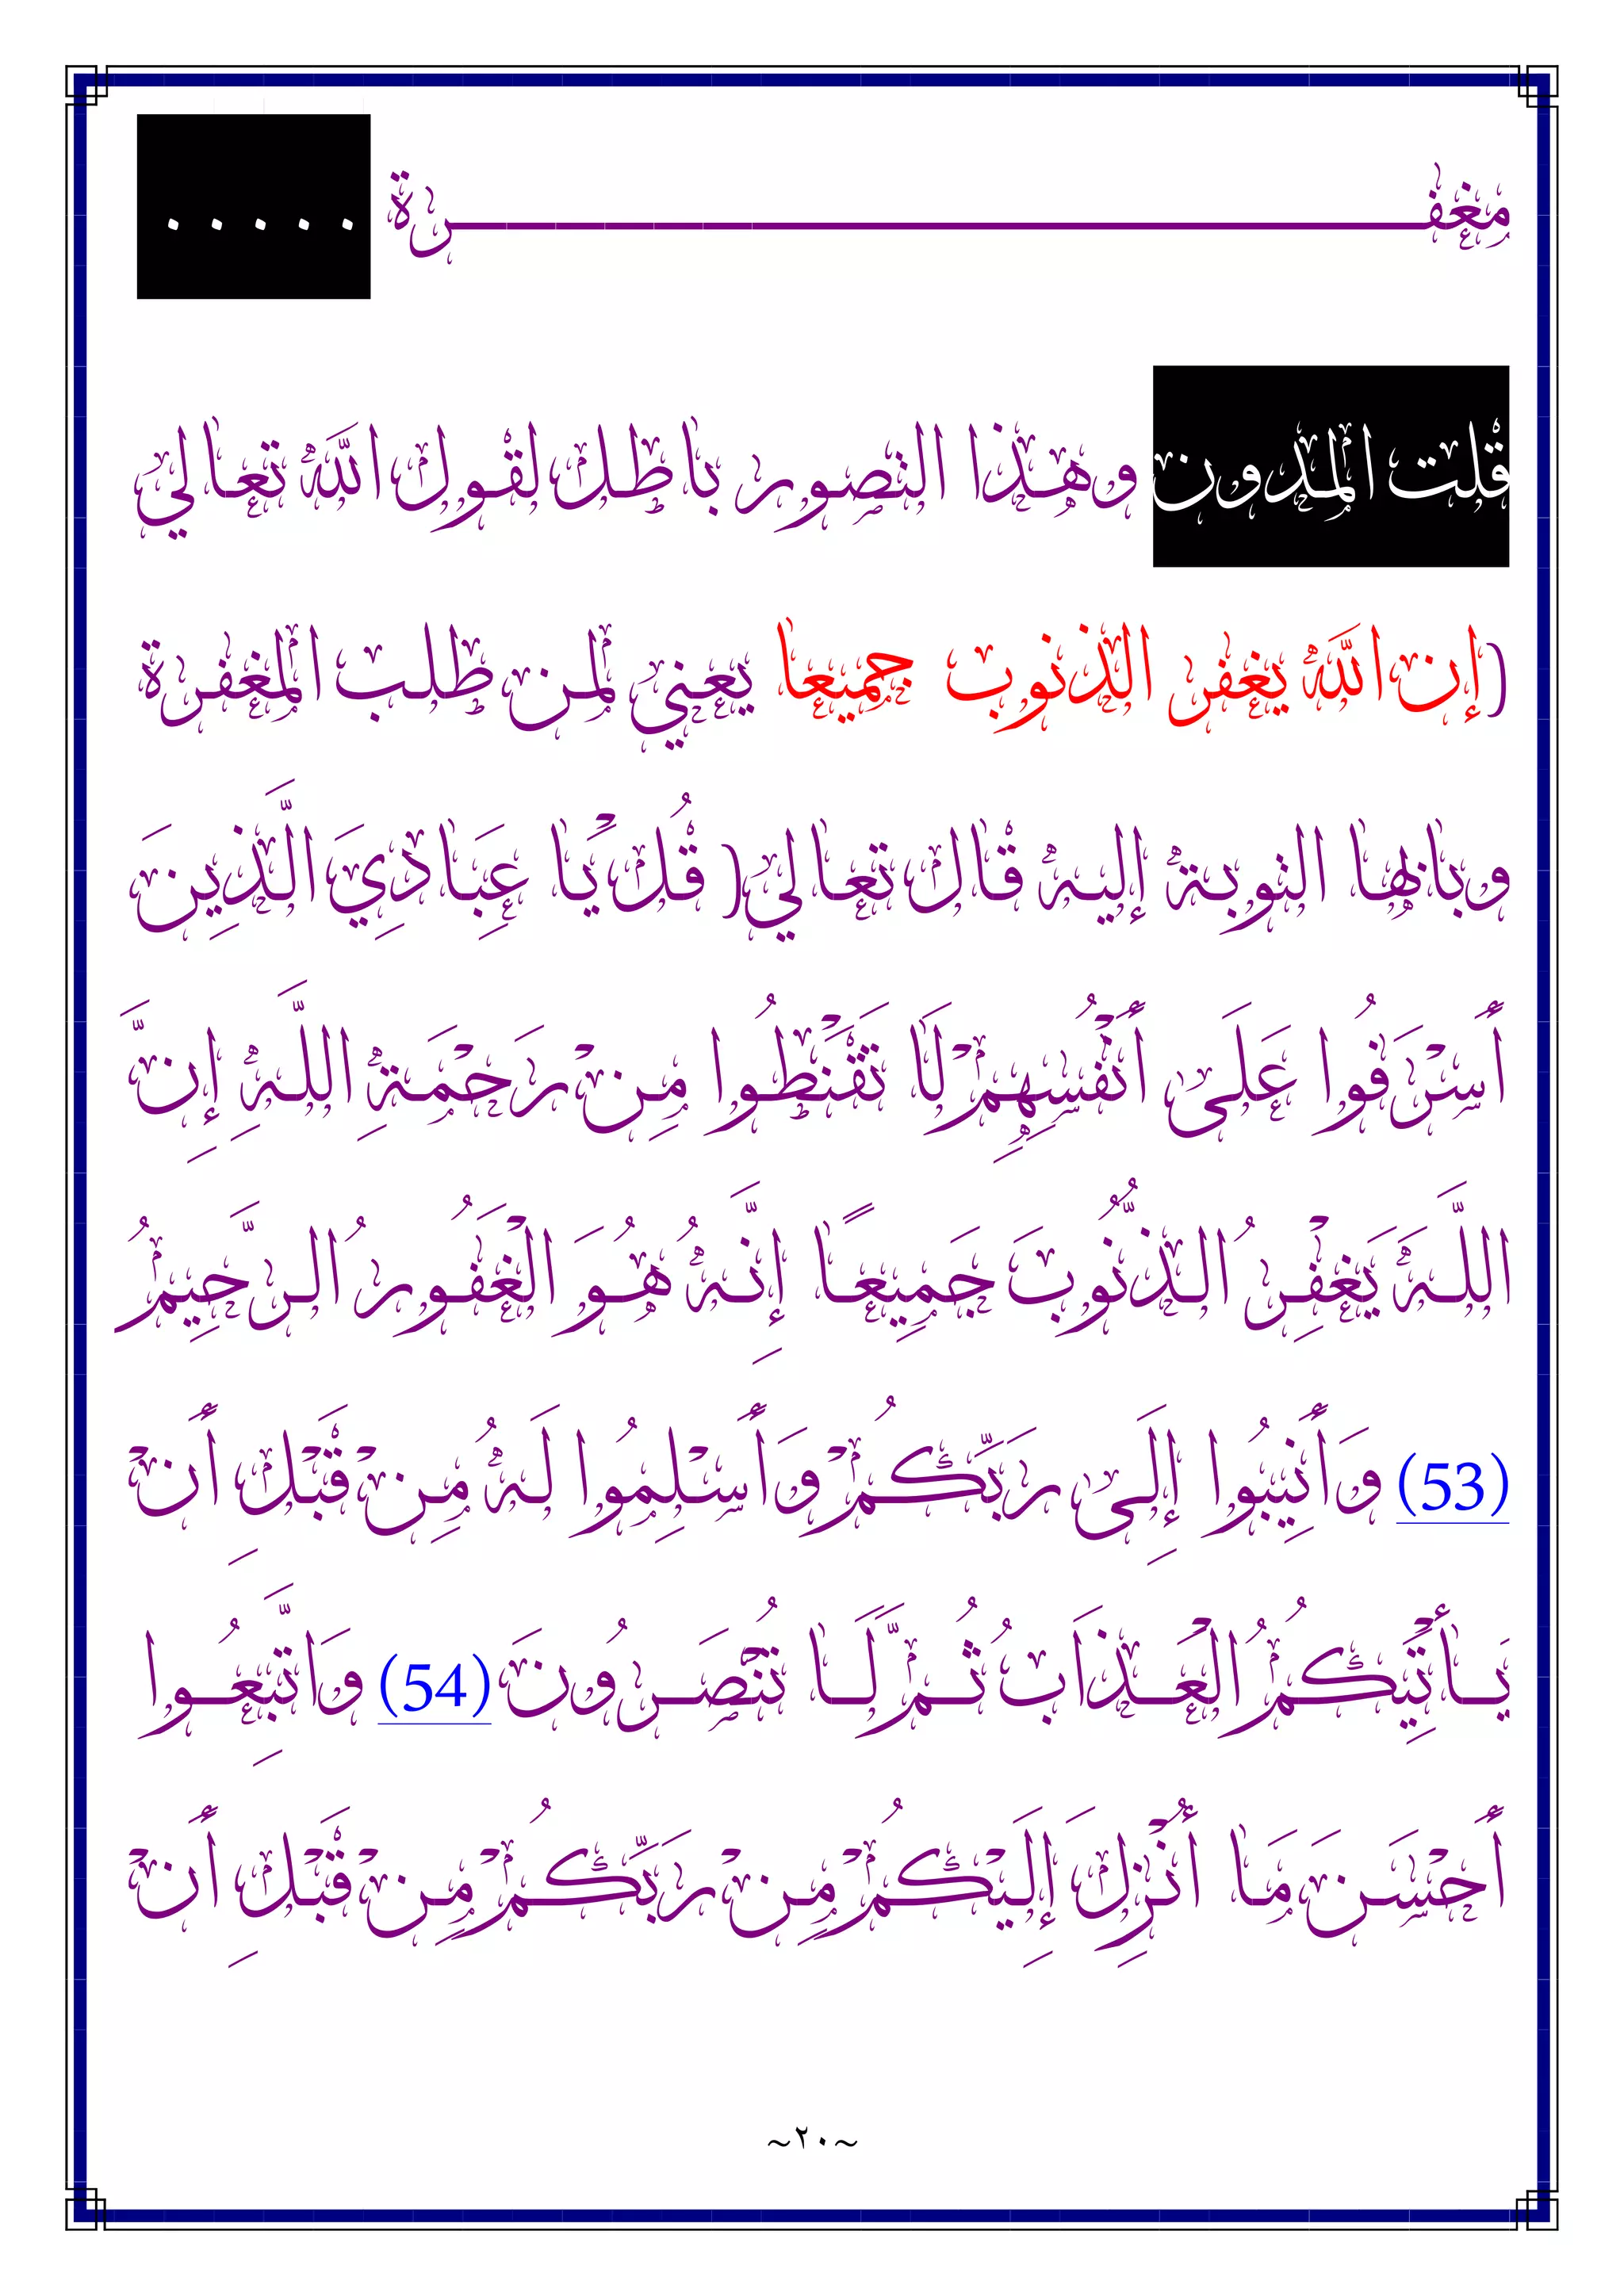 مغفـــــــــــــــــــــــــــــــــرة . . . . .
قلت المدون وهذا التصور باطل لقول الله تعالي
(إن الله يغفر الذنوب جميعا يعني لمن طلب المغفرة
وبانها التوبة إليه قال تعالي( قُلْ يَا عِبَادِيَ الَّذِينَ
أَسْرَفُوا عَلَى أَنْفُسِهِمْ لَا تَقْنَطُوا مِنْ رَحْمَةِ اللَّهِ إِنَّ
اللَّهَ يَغْفِرُ الذُّنُوبَ جَمِيعًا إِنَّهُ هُوَ الْغَفُورُ الرَّحِيمُ
(53) وَأَنِيبُوا إِلَى رَبِّكُمْ وَأَسْلِمُوا لَهُ مِنْ قَبْلِ أَنْ
يَأْتِيَكُمُ الْعَذَابُ ثُمَّ لَا تُنْصَرُونَ (54) وَاتَّبِعُوا
أَحْسَنَ مَا أُنْزِلَ إِلَيْكُمْ مِنْ رَبِّكُمْ مِنْ قَبْلِ أَنْ
~٢٠~